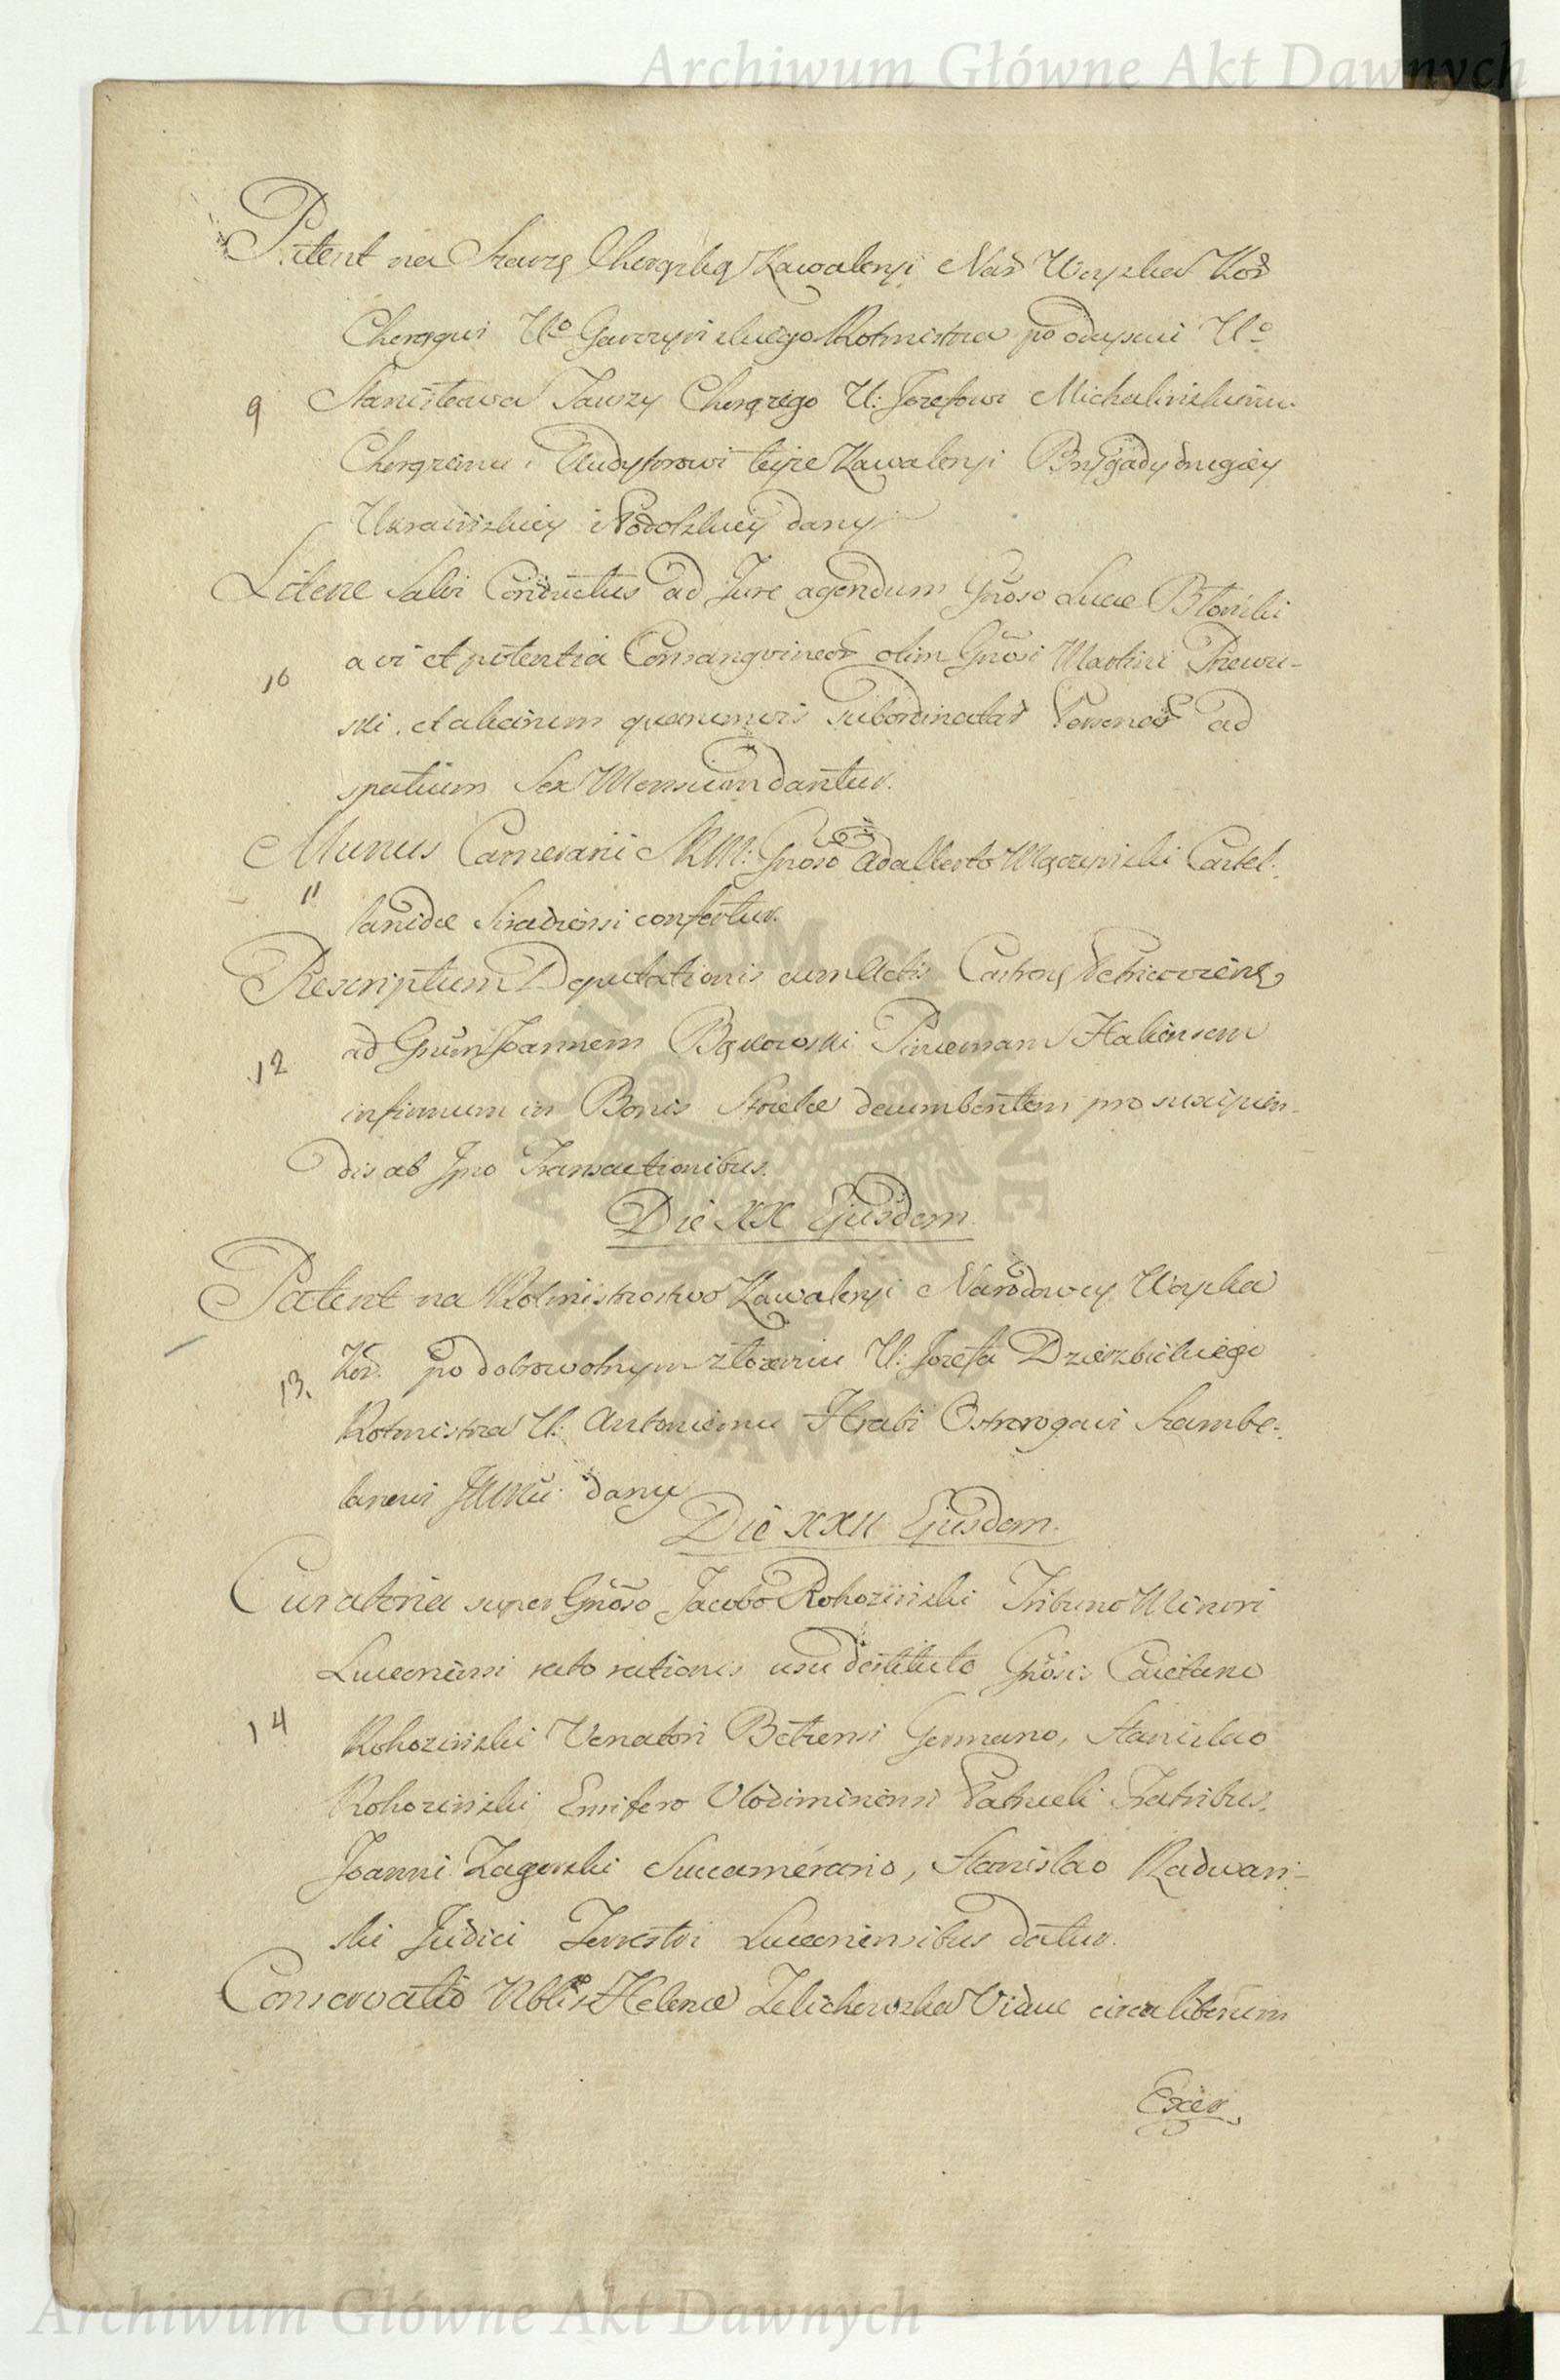 Archiwum Główne Akt Dawnych
Patent na Szarżę Chorążką Kawaleryi Nar Woyska Kor
Chorągwi Uo Garczyńskiego Rotmistrza po odeyściu Uo
9 Stanisława Jawzy Chorążego U: Jozefowi Michalińskiemu
Chorążemu i Audytorowi teyże Kawaleryi Brygady drugiey
Ukraińskiey i Podolskiey dany
Litteræ Salvi Conductus ad Jure agendum Gnoso Lucæ Błoński
10 a vi et potentia Consangvineor olim Gnosi Martini
ski, et aliarum quarumvis subordinatar Personar ad
spatium Sex Mensium dantur.
Munus Camerarii SRM: Gnoso Adalberto Mączyński Castel:
11 lanidæ Siradiensi confertur.
Rescriptum Deputationis cum Actis Castrens Petricoviens
12 ad Gnum Joannem Bąkowski Pincernam Haliciensem
infirmum in Bonis decumbentem pro suscipien-
dis ab Ipso Transactionibus.
Die XX Ejusdem
Patent na Rotmistrzostwo Kawaleryi Narodowey Woyska
13. Kor. po dobrowolnym złożeniu U: Jozefa Dzierzbickiego
Rotmistrza U: Antoniemu Hrabi Ostrorogowi Szambe:
lanowi JKMci dany
Die XXII Ejusdem.
Curatoria super Gnoso Jacobo Rohoziński Tribuno Minori
Luceoriensi rato rationis usu destituto Gnosis Caietano
14 Rohoziński Venatori Bełzensi Germano, Stanislao
Rohoziński Ensifero Vlodimiriensi Patrueli Fratribus,
Joanni Zagurski Succamerario, Stanislao Radwań-
ski Judici Terrestri Luceoriensibus datur.
Conservatio Nblis Helenæ Zelichowska Viduæ circa liberum
Exer
ARCHIWUM GŁÓWNE AKT DAWNYCH
Archiwum Główne Akt Dawnych